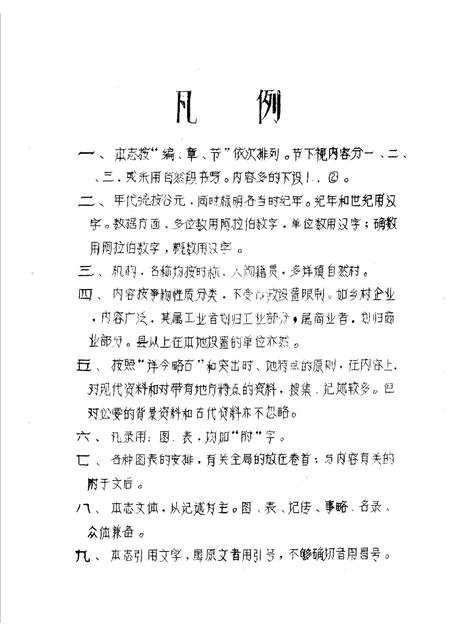 凡 例
一、本志按“编、章、节”依次排列。节下视内容分一、二、
三,或采用自然段书写。内容多的下设1、②。
二、年代统按公元,同时标明各当时纪年。纪年和世纪用汉
字。数据方面、多位数用阿拉伯数字,单位数用汉字;确数
用阿拉伯数字,概数用汉字。
三、机构、名称均按时称、人物籍贯,多详填自然村。
四、内容按事物性质分类,不受行政设置限制。如乡村企业
,内容广泛,其属工业者划归工业部分,属商业者,划归商
业部分。县以上在本地设置的单位亦然。
五、按照“详今略古”和突出时、地特点的原则,在内容上,
对现代资料和对带有地方特点的资料,搜集、记述较多。但
对必要的背景资料和古代资料亦不忽略。
六、凡录用:图、表,均加“附”字。
七、各种图表的安排,有关全局的放在卷首;与内容有关的
附于文后。
八、本志文体,从记述为主。图、表、记传、事略、名录、
众体兼备。
九、本志引用文字,属原文者用引号,不够确切者用冒号。